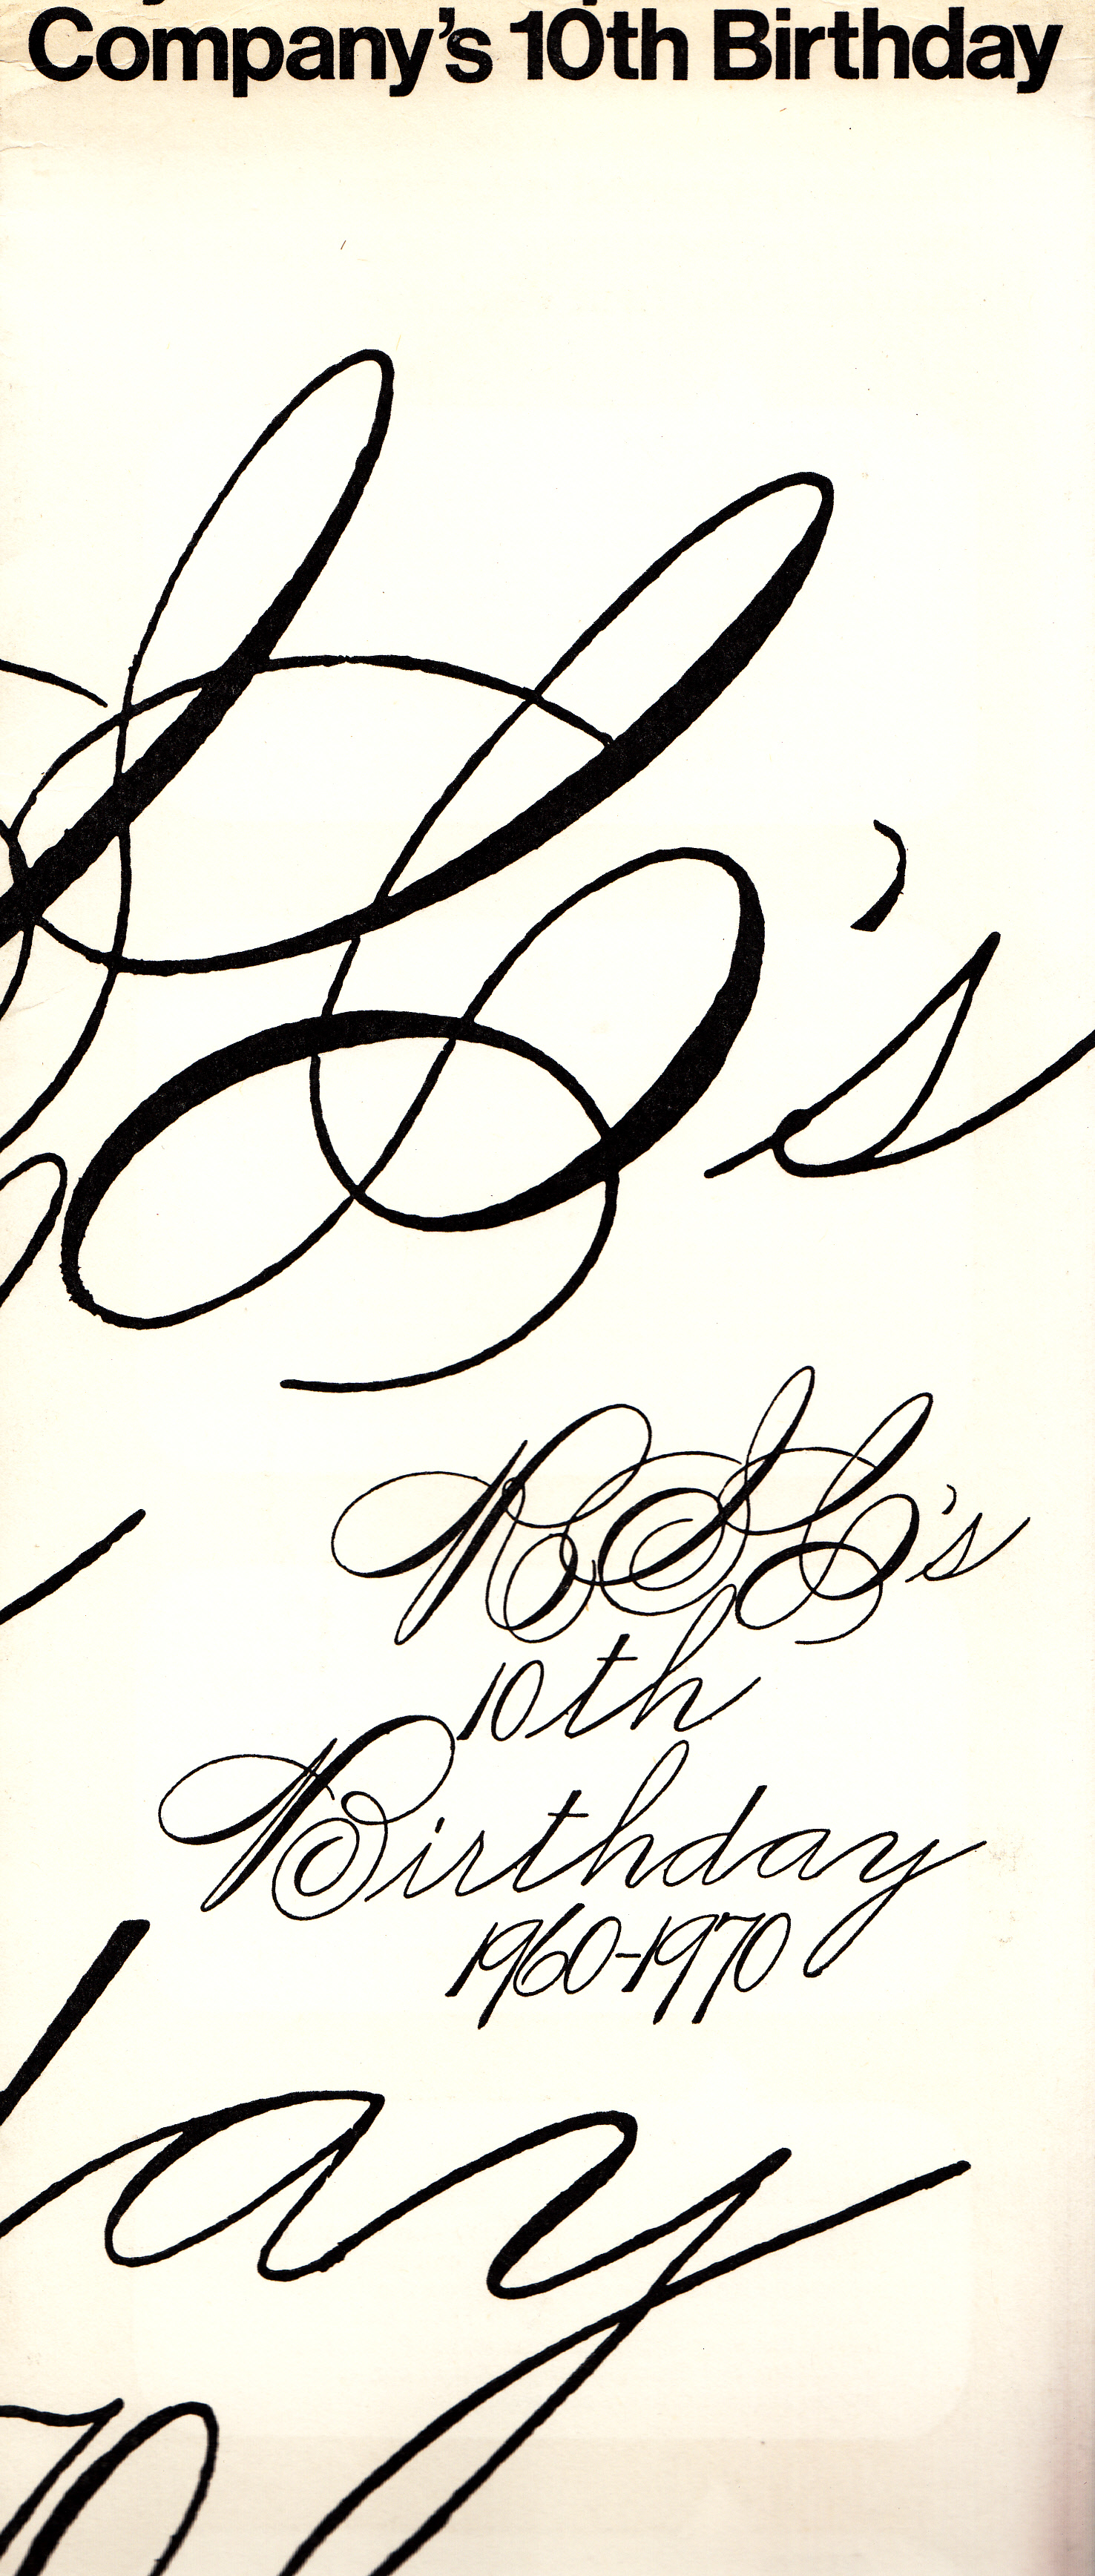 Company's 10th Birthday
SC's
RSC's
10th
Birthday
1960-1970
day
70